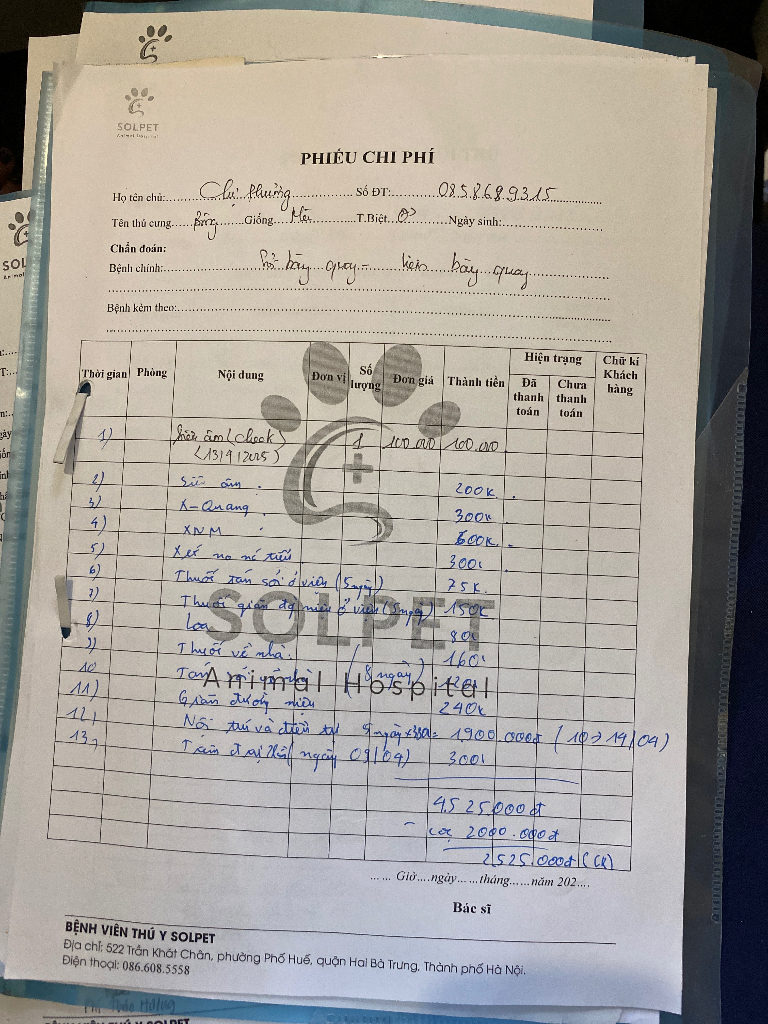 SOLPET
Animal Hospital
PHIẾU CHI PHÍ
Họ tên chủ: Chị Hường Số ĐT: 0858689315
Tên thú cưng Bông Giống Mèo T.Biệt Ngày sinh:
Chẩn đoán:
Bệnh chính: bàng quang - bàng quang
Bệnh kèm theo:
Thời gian Phòng Nội dung Đơn vị Số lượng Đơn giá Thành tiền Hiện trạng Đã thanh toán Chưa thanh toán Chữ kí Khách hàng
1) Siêu âm (check) 1 100.000 100.000
(13/4/2025)
2) Siêu âm. 200k
3) X-Quang 300k
4) XNM 600k
5) Xét niệu 300k
6) Thuốc tan sỏi ở viện (5 ngày) 75k
7) Thuốc giãn đg niệu ở viện (5 ngày) 150k
8) Loa 80k
9) Thuốc về nhà. 160k
10 Tan sỏi (8 ngày) 120k
11) Giãn đường niệu 240k
12) Nội trú và điều trị 5 ngày x 380 = 1900.000đ (10->14/04)
13, (ngày 09/04) 300k
4.525.000đ
- cọc 2000.000đ
2.525.000đ (CK)
SOLPET
Animal Hospital
Giờ....ngày......tháng......năm 202....
Bác sĩ
BỆNH VIỆN THÚ Y SOLPET
Địa chỉ: 522 Trần Khát Chân, phường Phố Huế, quận Hai Bà Trưng, Thành phố Hà Nội.
Điện thoại: 086.608.5558